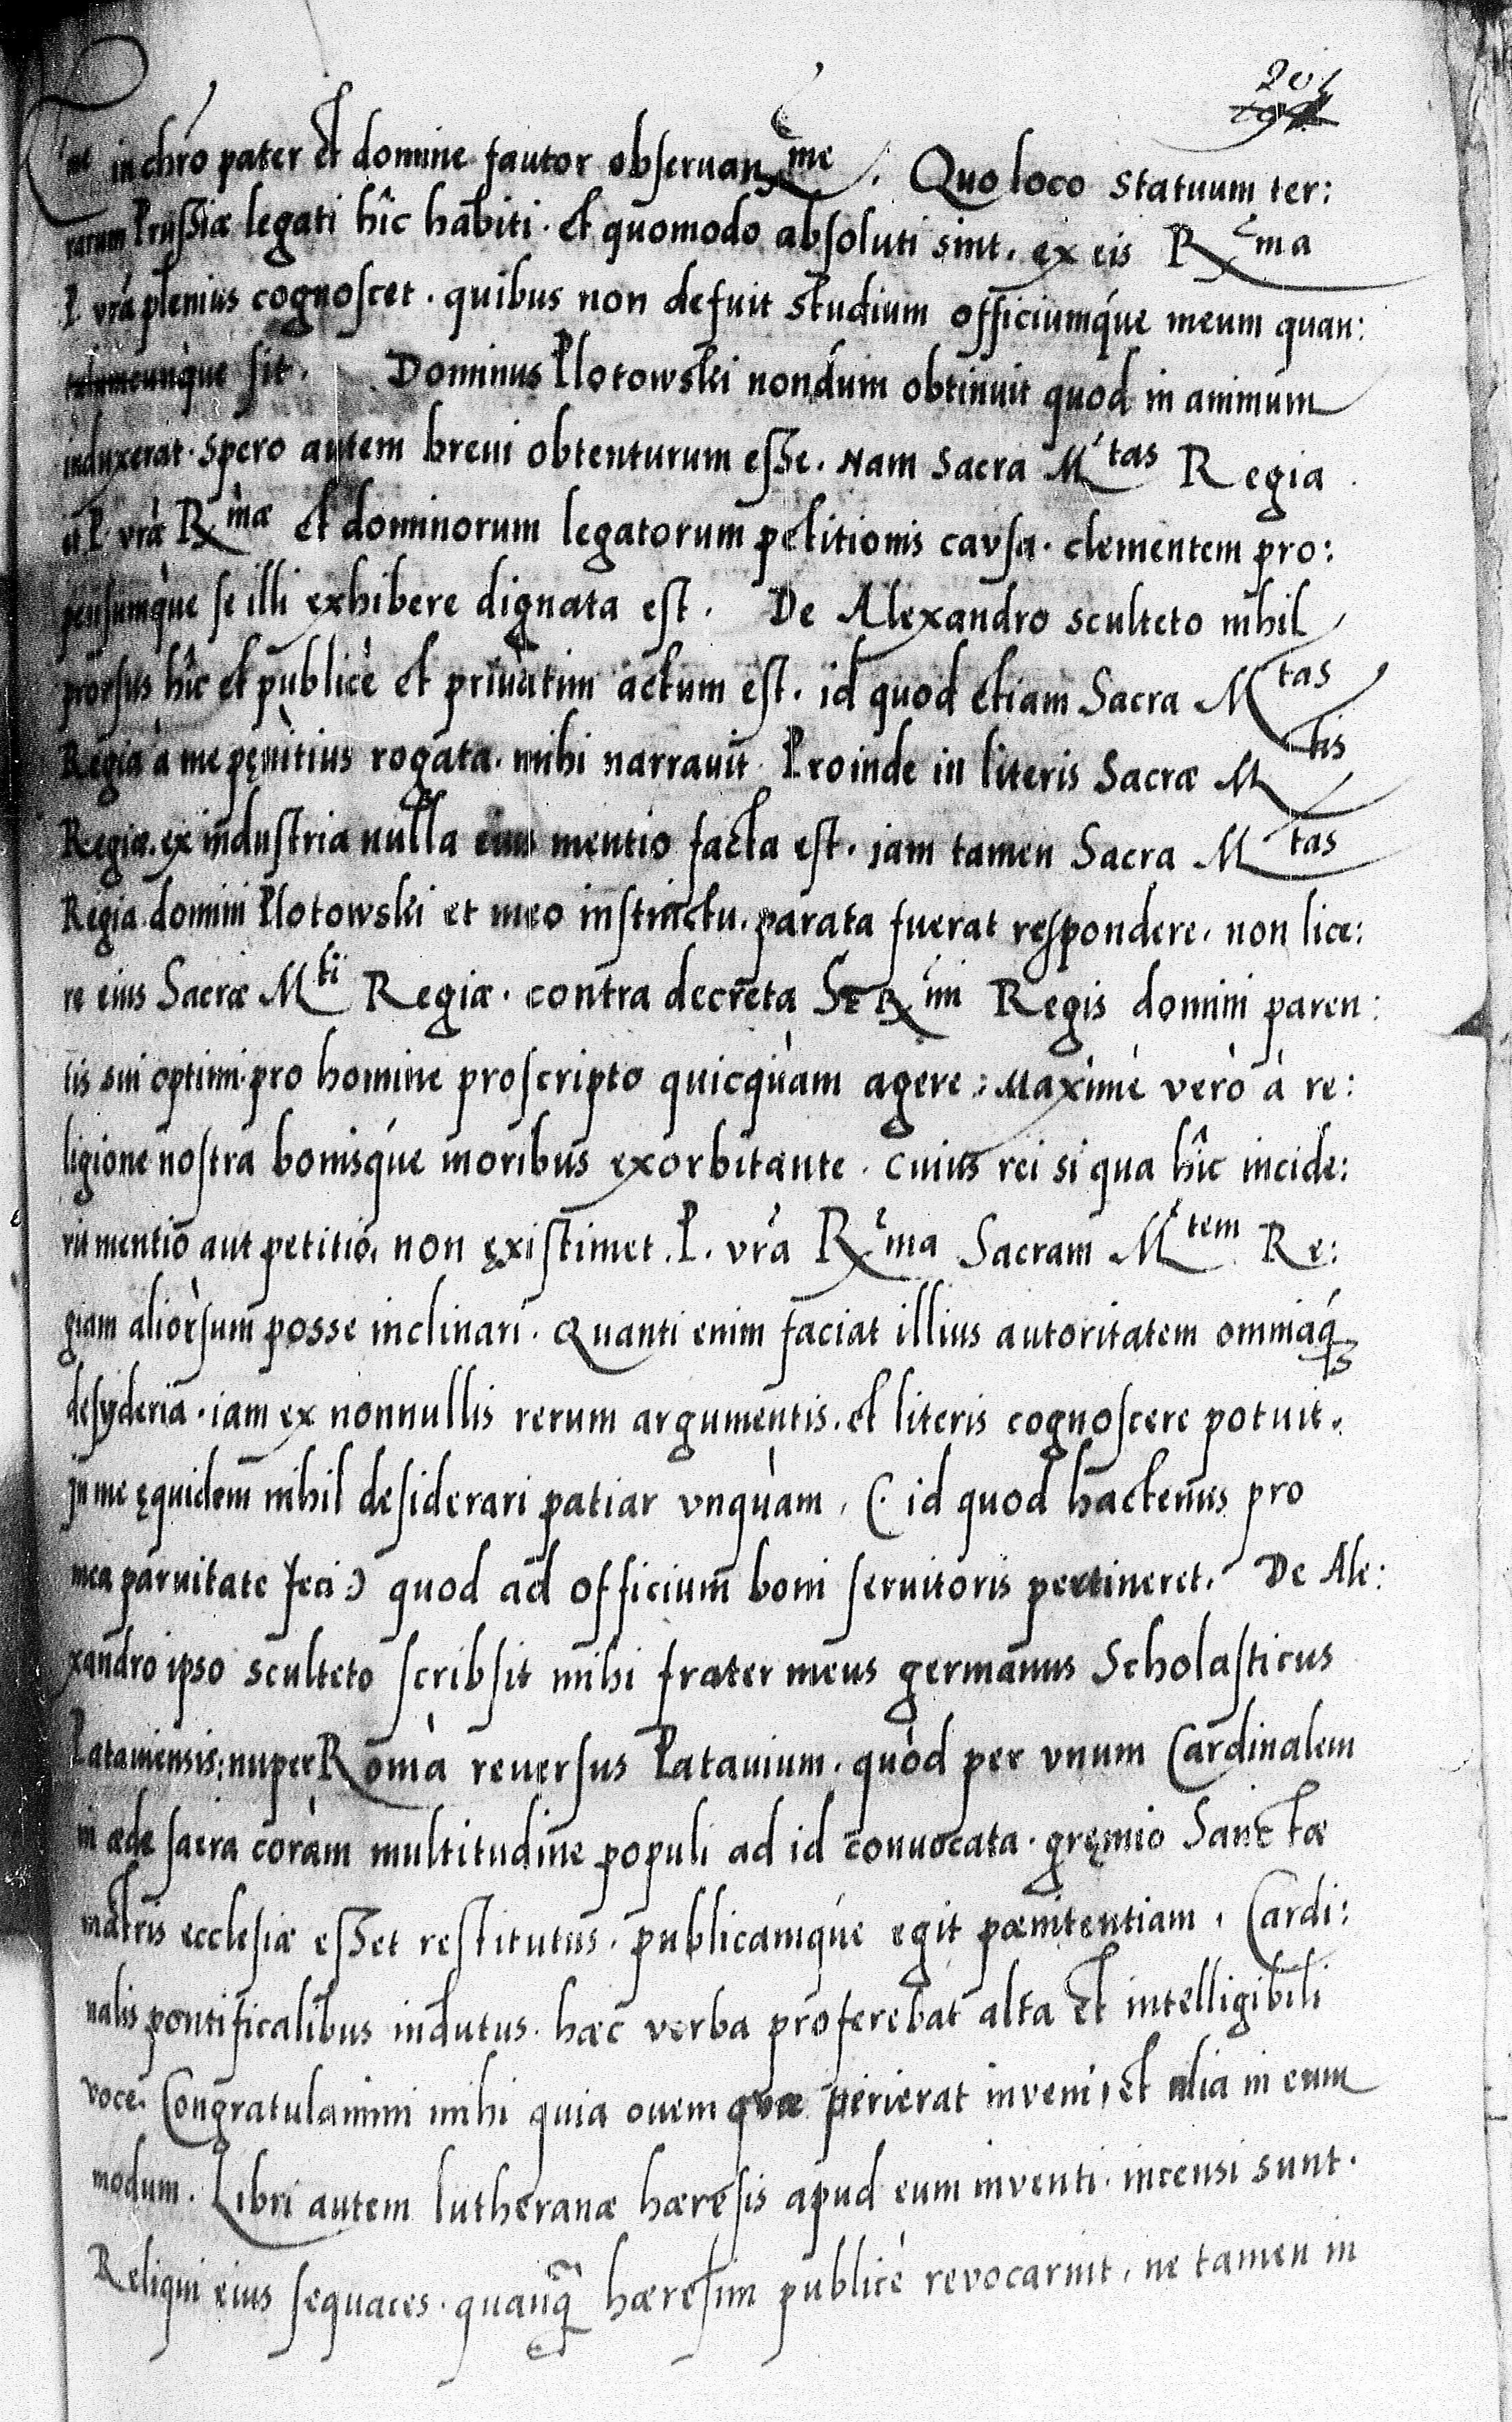 201
in chro pater et domine fautor obseruan^me. Quo loco statuum ter:
rarum Prussiæ legati hîc habiti. et quomodo absoluti sint. ex eis R^ma
P. vrâ plenius cognoscet. quibus non defuit studium officiumq́ue meum quan:
tulumcunque sit. Dominus Plotowski nondum obtinuit quod in animum
induxerat. spero autem breui obtenturum esse. Nam Sacra M^tas Regia
P. vrâ R^mæ et dominorum legatorum petitionis causa. clementem pro:
pensumq̀ue se illi exhibere dignata est. De Alexandro sculteto nihil
prorsus hîc et publicè et priuàtim actum est. id quod etiam Sacra M^tas
Regia à me pęnìtius rogata. mihi narrauit. Proinde in literis Sacræ M^tis
Regiæ. ex industria nulla eius mentio facta est. iam tamen Sacra M^tas
Regia domini Plotowski et meo instinctu. parata fuerat respondere. non lice:
re eius Sacræ M^ti Regiæ. contra decreta Ser^mi Regis domini paren:
tis sui optimi. pro homine proscripto quicquàm agere: Maximè verò à re:
ligione nostra bonisq́ue moribus exorbitante. cuius rei si qua hîc incide:
rit mentio aut petitio, non ęxistimet. P. vrâ R^ma Sacram M^tem Re:
giam aliorsum posse inclinari. Quanti enim faciat illius autoritatem omniaq́3
desyderia. iam ex nonnullis rerum argumentis. et literis cognoscere potuit.
jn me ęquidem nihil desiderari patiar vnquàm, (: id quod hactenus pro
mea paruitate feci:) quod ad officium boni seruitoris pertineret. De Ale:
xandro ipso sculteto scribsit mihi frater meus germanus Scholasticus
Patauiensis: nuper Romà reuersus Patauium. quòd per vnum Cardinalem
in æde sacra coràm multitudine populi ad id conuocata. gręmio Sanctæ
matris ecclesiæ esset restitutus. publicamq́ue egit pœnitentiam. Cardi:
nalis pontificalibus indutus. hæc verba proferebat alta et intelligibili
voce. Congratulamini mihi quia ouem quæ perierat inveni, et alia in eum
modum. Libri autem lutheranæ hæresis apud eum inventi. incensi sunt.
Reliqui eius sequaces. quanq̃ hæresim publicè revocarint, ne tamen in